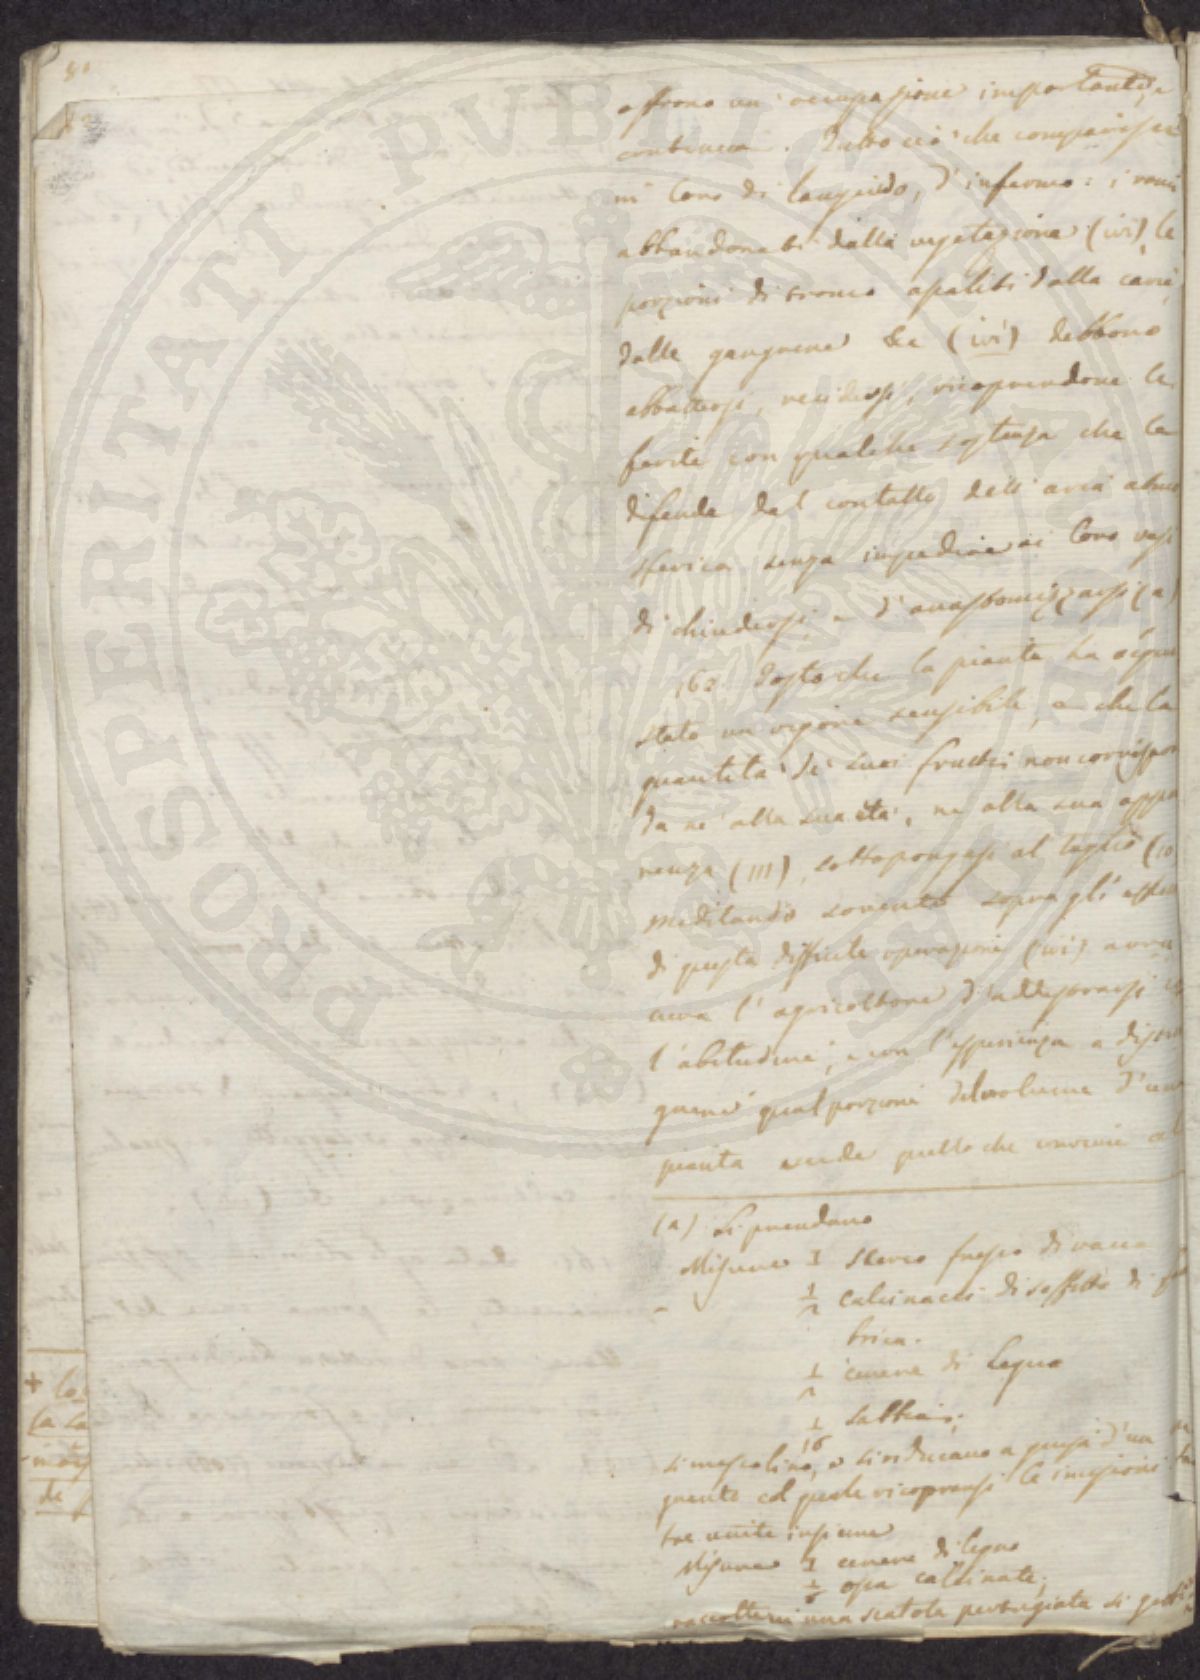 offrono un' occupazione importante, e
continua. Tutto ciò che comparisce
in loro di languido, d'infermo: i rami
abbandonati dalla vegetazione (ivi), le
porzioni di tronco assalite dalla carie,
dalle gangrene &c (ivi) debbono
abbattersi, recidersi, ricoprendone le
ferite con qualche sostanza che le
difenda dal contatto dell' aria atmo
sferica senza impedire ai loro vasi
di chiudersi, e d'anastomizzarsi (a)
162. Tosto che la pianta ha acqui
stato un vigore sensibile, e che la
quantità de' suoi frutti non corrispon
da nè alla sua età, nè alla sua appa
renza (111), sottopongasi al taglio (10
meditando sovente sopra gli effetti
di questa difficile operazione (ivi) avrà
cura l' agricoltore d'addestrarsi
l'abitudine, e con l'esperienza a distin
guere qual porzione del volume d'una
pianta renda quello che conviene al
(a) Si prendano
Misure 1 sterco fresco di vacca
- 1/2 calcinacci di soffitto di fab
brica.
1/2 cenere di legna
1/16 sabbia;
si mescolino, e si riducano a guisa d'un un
guento col quale ricopransi le incisioni
tre unite insieme
Misure 1 cenere di legno
ossa calcinate;
raccolte in una scatola pertugiata si getti
PROSPERITATI PVBLICAE
+
la
de